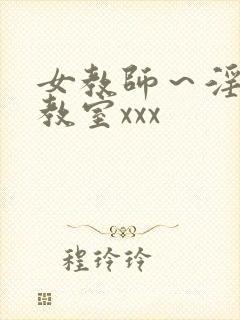 女教师～淫
教室xxx
程玲玲